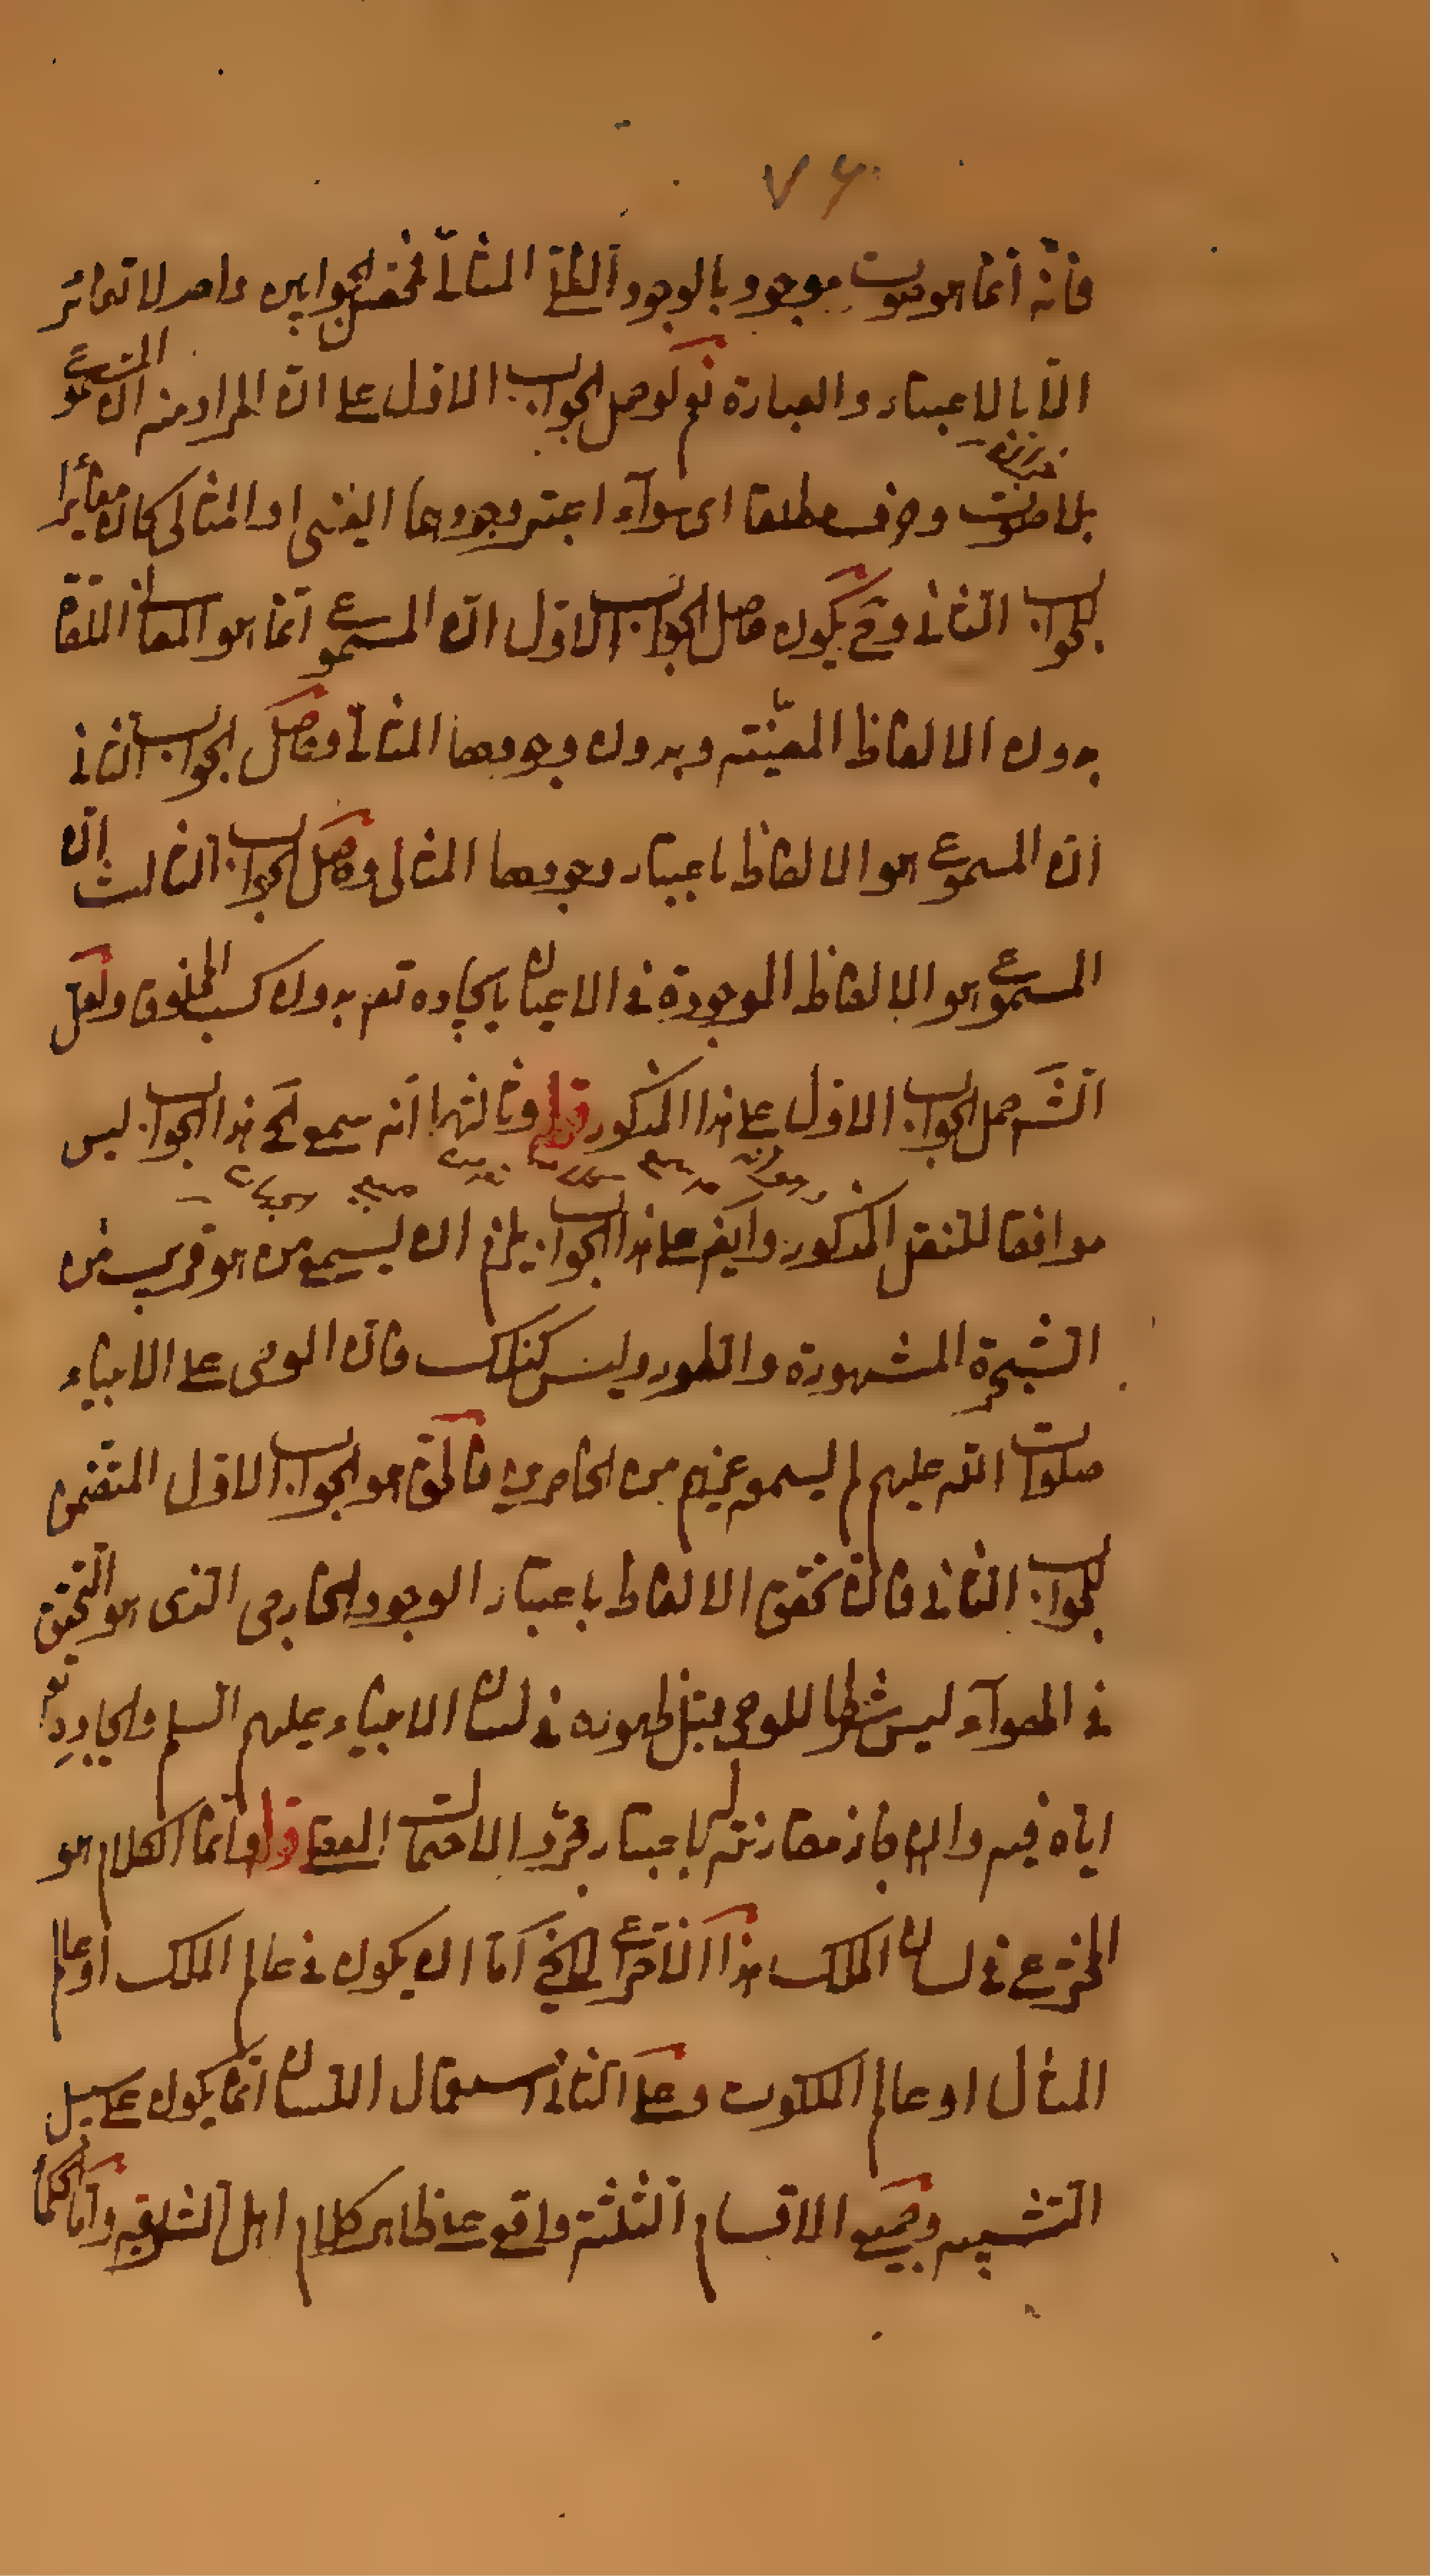 ٧٦
فانّه انما هو صوت موجود بالوجود الظلّى المثالى فمحصّل الجوابين واحد لا تمايز
الّا بالاعتبار والعبارة نعم لو حمل الجواب الاول على انّ المراد منه ان المسموع هو
بلا صوت وحرف مطلقا اى سواء اعتبر وجودهما العينى او المثالى كان مغايرا
للجواب الثانى وح يكون حاصل الجواب الاول انّ المسموع انما هو المعانى
بدون الالفاظ المعيّنة وبدون وجودها المثالى وحاصل الجواب الثانى
انّ المسموع هو الالفاظ باعتبار وجودها المثالى وحاصل الجواب الثالث انّ
المسموع هو الالفاظ الموجودة فى الاعيان بايجاده تعم بدون كسب المخلوق ولعل
الشّ حمل الجواب الاول على هذا المذكور قوله وثالثها انّه سمع الخ هذا الجواب ليس
موافقا للنقل المذكور وايضم على هذا الجواب يلزم ان يسمع من هو قريب من
الشجرة المشهورة والطور وليس كذلك فانّ الوحى على الانبياء
صلوات الله عليهم لم يسمعه غيرهم من الحاضرين فالحق هو الجواب الاول المتضمن
للجواب الثانى فانّ تحقق الالفاظ باعتبار الوجود الخارجى الذى هو التحقق
فى الهواء ليس شرطا للوحى قبل ظهوره فى لسان الانبياء عليهم السلم وايجاده تعم
ايّاه فيه وان جاز مقارنته له باعتبار مجرّد الاحتمالات العقلى قوله وانما الكلام هو
المخترع فى لسان الملك هذا الاختراع الخ امّا ان يكون فى عالم الملك او عالم
المثال او عالم الملكوت وعلى الثانى استعمال اللسان انّما يكون على سبيل
التشبيه وجميع الاقسام الثلثة واقع على ظاهر كلام اهل الشريعة وامّا الحكماء